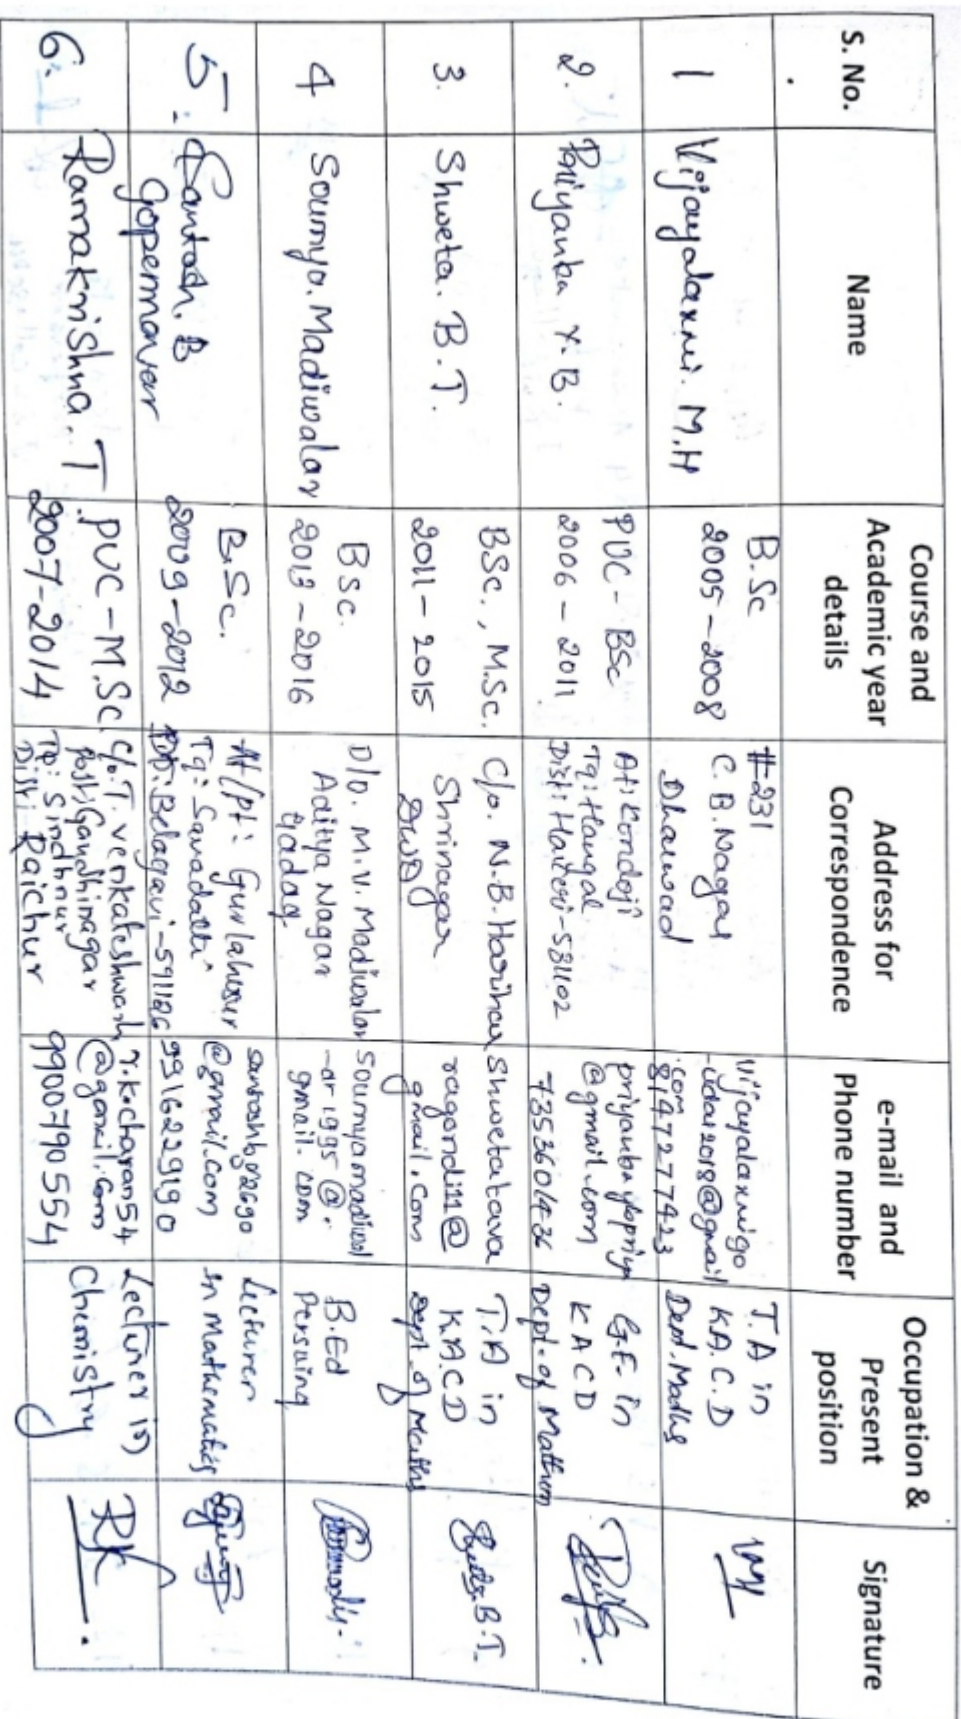 S. No.
Name
Course and
Academic year
details
Address for
Correspondence
e-mail and
Phone number
Occupation &
Present
position
Signature
1
Vijayalaxmi. M.H
B.Sc
2005-2008
#231
C.B.Nagar
Dharwad
Vijayalaxmigo
udar2018@gmail
.com
8147277423
T.A in
K.A.C.D
Dept. Maths
2.
Priyanka Y.B.
PUC - BSc
2006 - 2011
At: Kondoji
Tq: Hangal
Dist: Haveri-581102
@gmail.com
7353601436
G.F. in
KACD
Dept. of Mathem
3.
Shweta. B.T.
BSc., M.Sc.
2011 - 2015
C/o. N.B. Harihar
Shrinagar
DWD
Shwetatava
ragondi11@
gmail.com
T.A in
K.A.C.D
Dept. of Maths
Shweta.B.T.
4
Soumya. Madiwalar
BSc.
2013 - 2016
D/o. M.V. Madiwalar
Aditya Nagar
Gadag
soumyamadiwal
-ar1995@.
gmail.com
B.Ed
Persuing
5.
Santosh. B
Gopennavar
B.Sc.
2009-2012
At/pt: Gurlahosur
Tq: Savadatti
Dt: Belagavi-591126
santoshbg2690
@gmail.com
9916229190
Lecturer
in Mathematics
6.
Ramakrishna. T
PUC - M.Sc.
2007-2014
C/o. T. venkateshwarh
post: Gandhinagar
Tq: Sindhnur
Dist: Raichur
r.k.charan54
@gmail.com
9900790554
Lecturer in
Chemistry
RK